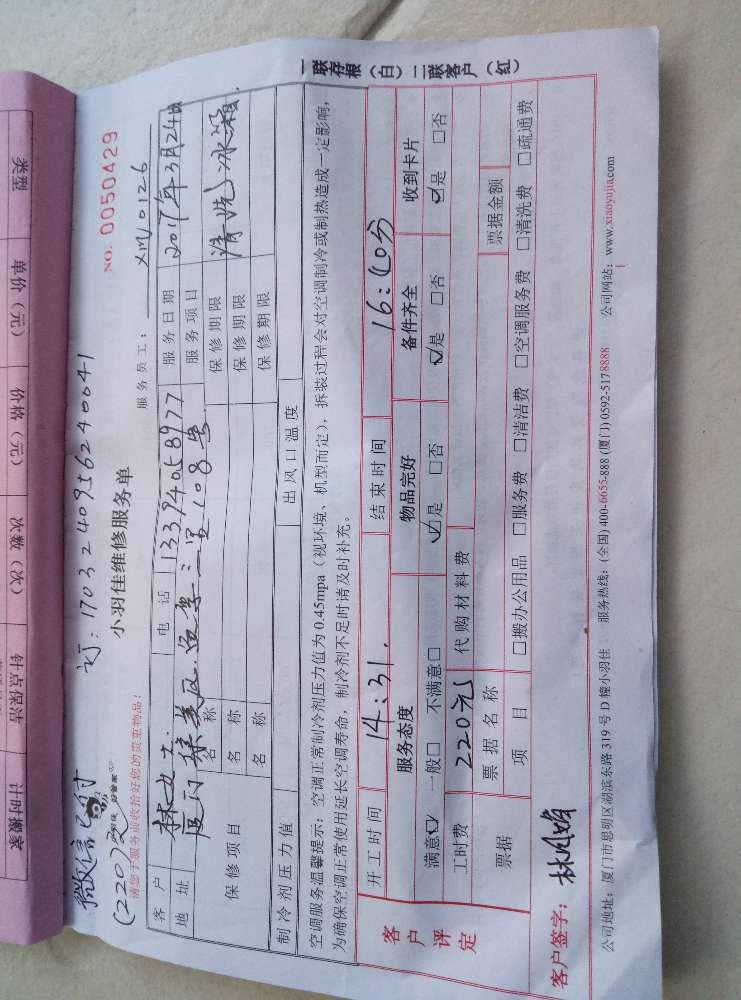 微信已付 订:17032409562406641
(220元)
小羽佳维修服务单
NO. 0050429
请您于服务前收拾好您的贵重物品!
服务员工: XM10126
客户 林女士 电话 13394058977 服务日期 2017年3月24日
地址 服务项目 清洗冰箱
保修项目 名称 保修期限
名称 保修期限
名称 保修期限
制冷剂压力值 出风口温度
空调服务温馨提示:空调正常制冷剂压力值为0.45mpa(视环境、机型而定),拆装过程会对空调制冷或制热造成一定影响,
为确保空调正常使用延长空调寿命,制冷剂不足时请及时补充。
客户评定
开工时间 14:31. 结束时间 16:40分
服务态度 物品完好 备件齐全 收到卡片
满意☑ 一般□ 不满意□ ☑是 □否 ☑是 □否 ☑是 □否
工时费 220元 代购材料费
票据 票据名称 票据金额
项目 □搬办公用品 □服务费 □清洁费 □空调服务费 □清洗费 □疏通费
客户签字:
公司地址:厦门市思明区湖滨东路319号D幢小羽佳 服务热线:(全国)400-6655-888 (厦门)0592-5178888 公司网站:www.xiaoyujia.com
一联存根(白)二联客户(红)
类型 单价(元) 价格(元) 次数(次) 钟点保洁 计时搬家